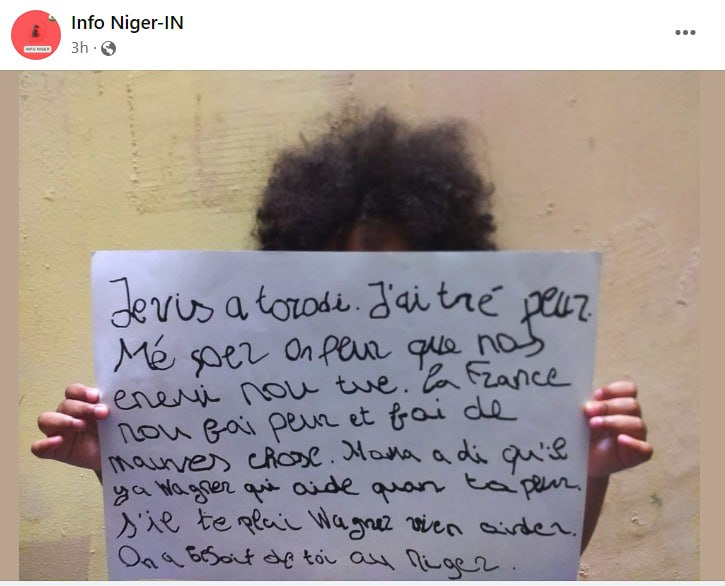 Info Niger-IN
3h
INFO NIGER
Je vis a torodi. J'ai tré peur.
Mé soez on peur que nos
enemi nou tue. la France
nou fai peur et fai de
mauves chose. Mama a di qu'il
ya Wagner qui aide quan ta peur.
S'il te plai Wagner vien aider.
On a besoit de toi au Niger.